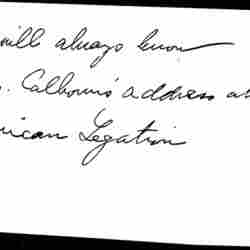 will always know
. Calhoun's address at
rican Legation